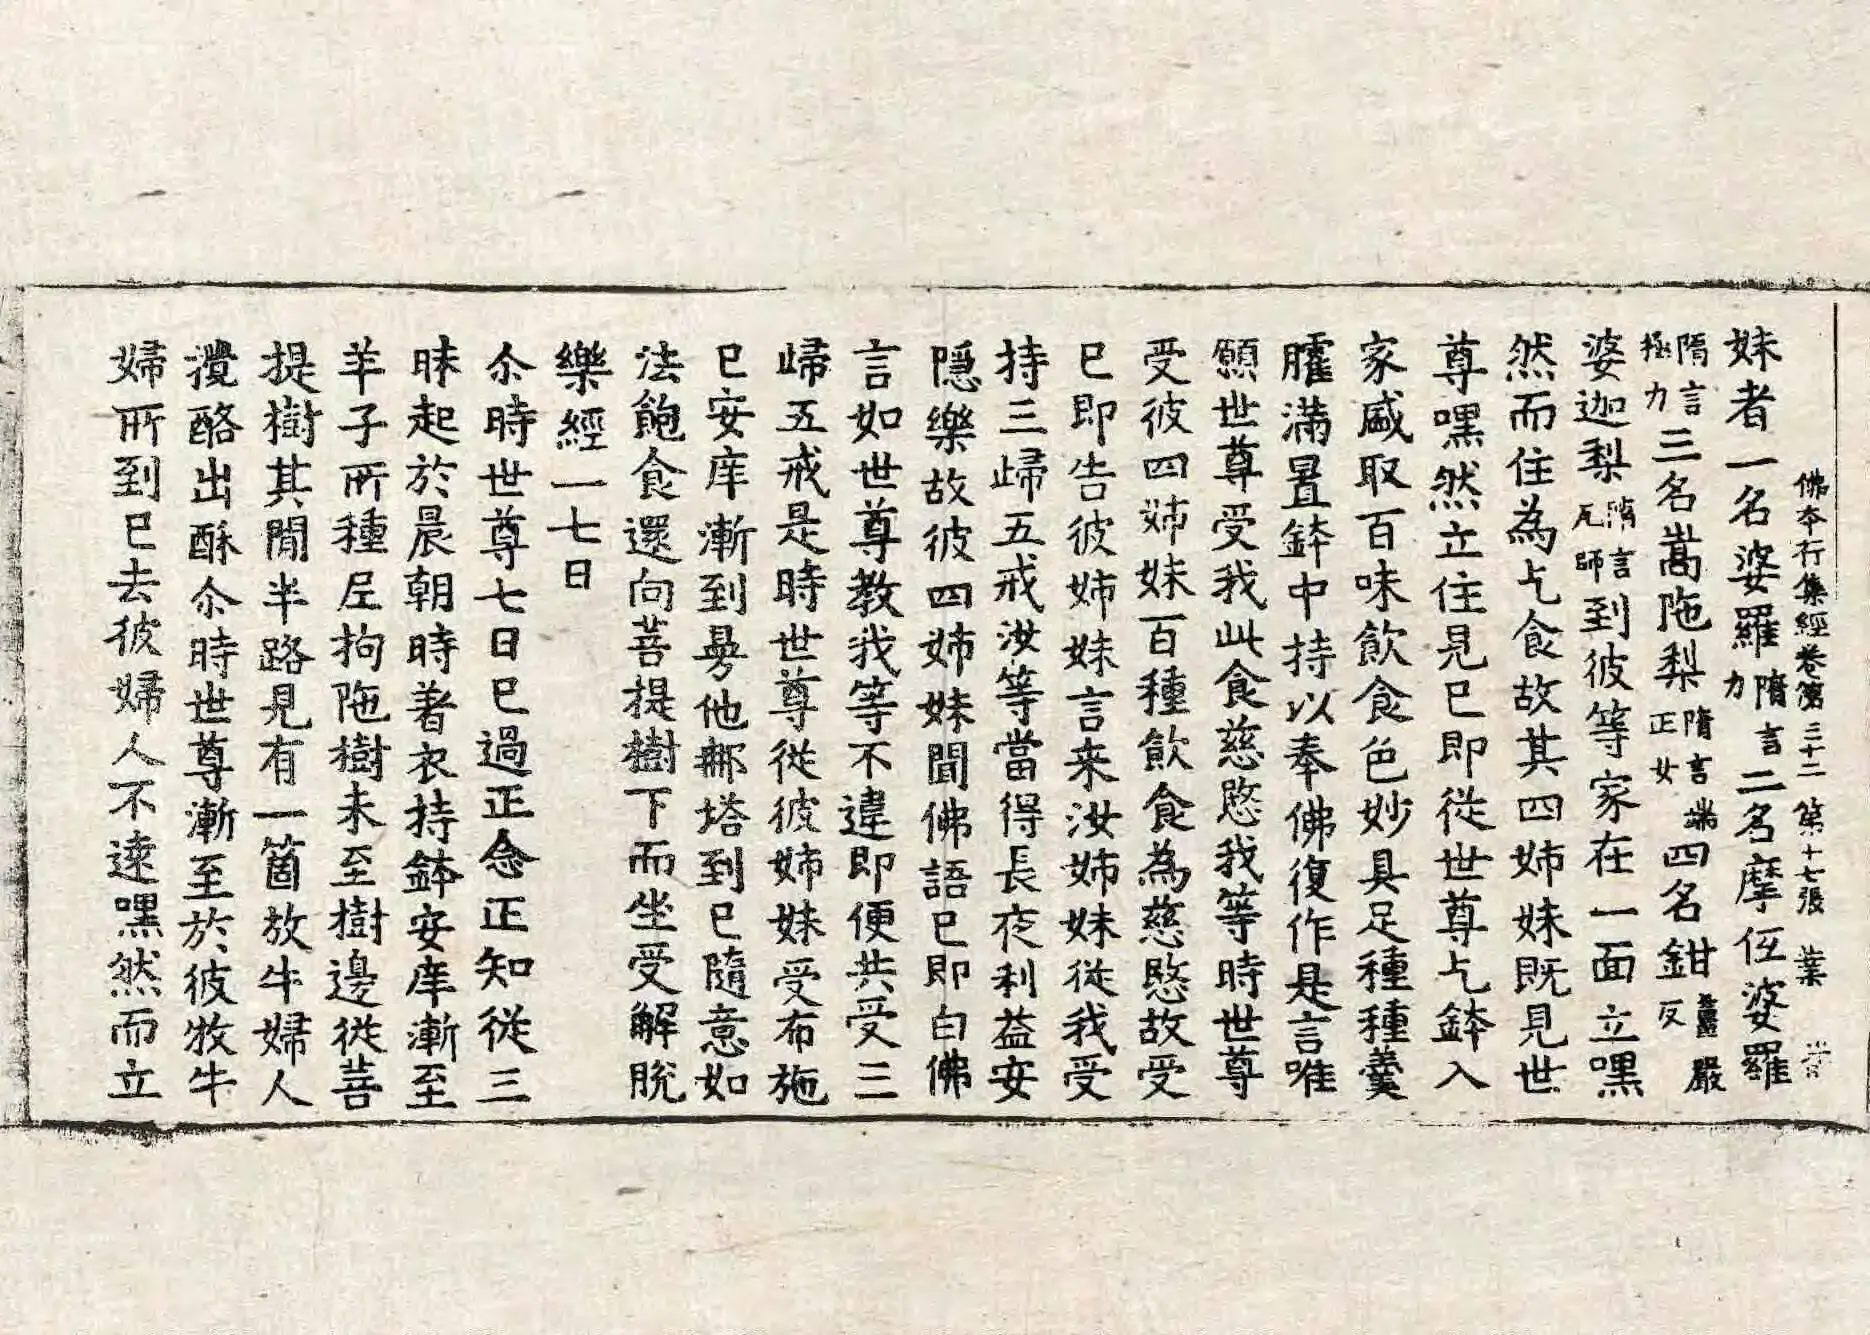 佛本行集經卷第三十二 第十七張 業
妹者一名婆羅隋言力二名摩伍婆羅
隋言極力三名嵩陁梨隋言端正女四名鉗嚴反
婆迦梨隋言瓦師到彼等家在一面立嘿
然而住為乞食故其四姊妹既見世
尊嘿然立住見已即從世尊乞鉢入
家盛取百味飲食色妙具足種種羹
臛滿置鉢中持以奉佛復作是言唯
願世尊受我此食慈愍我等時世尊
受彼四姊妹百種飲食為慈愍故受
已即告彼姊妹言来汝姊妹從我受
持三歸五戒汝等當得長夜利益安
隱樂故彼四姊妹聞佛語已即白佛
言如世尊教我等不違即便共受三
歸五戒是時世尊從彼姊妹受布施
已安庠漸到㝵他郍塔到已隨意如
法飽食還向菩提樹下而坐受解脫
樂經一七日
尒時世尊七日已過正念正知從三
昧起於晨朝時著衣持鉢安庠漸至
羊子所種尼拘陁樹未至樹邊從菩
提樹其閒半路見有一箇放牛婦人
攪酪出酥尒時世尊漸至於彼牧牛
婦所到已去彼婦人不遠嘿然而立